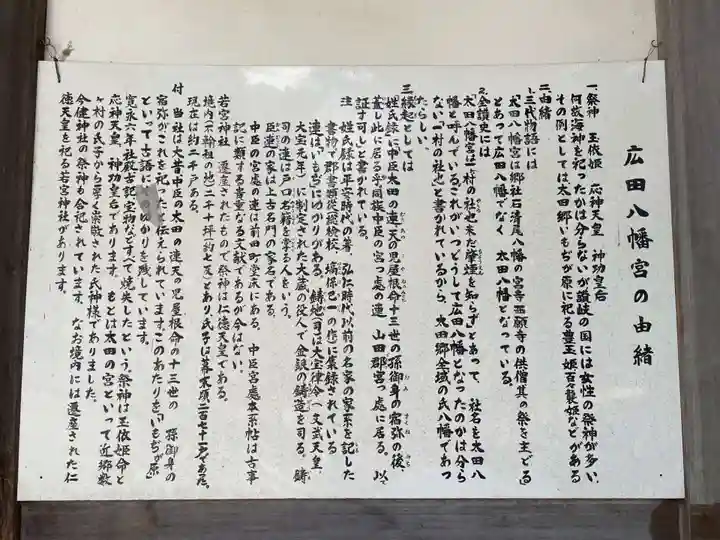 広田八幡宮の由緒
一、祭神 玉依姫 応神天皇 神功皇后
何故海神を祀ったかは分らないが讃岐の国には女性の祭神が多い、
その例としては太田郷いもぢが原に祀る豊玉姫百々襲姫などがある
二、由緒
1、三代物語には
「太田八幡宮は郷社石清尾八幡の宮寺西願寺の供僧其の祭を主どる」
とあって広田八幡でなく 太田八幡となっている。
2、全讃史には
「太田八幡宮は一村の社也未だ肇煙を知らず」とあって、社名を太田八
幡と呼んでいる。これがいつどうして広田八幡となったのかは分ら
ない「一村の社也」と書れているから、太田郷全域の氏八幡であつ
たらしい。
三、縁起としては
姓氏録に中臣太田の連天の児屋根命十三世の孫御身の宿弥の後、
蓋し此に居る乎同族中臣の宮っ處の連 山田郡宮っ處に居る。以
証す可し」と書かれている。
注 姓氏録は平安時代の著、弘仁時代以前の名家の家系を記した
書物で群書類従検校、塙保己一の作に集録されている
連は、いもぢにゆかりがある。鋳地(司)は大宝律令(文武天皇、
大宝元年)に制定された大蔵の役人で金鈠の鋳造を司る。鋳
司の連は戸口名籍を掌る人をいう。
臣連の家は上古名門の家の名である。
中臣の宮處の連は前田町堂床にある。中臣宮處本系帖は古事
記に類する貴重な文献であるが今はない。
若宮神社 遷座されたもので祭神は仁徳天皇である。
境内(不輸祖の地)二千十坪(約七反)とあり、氏子は幕末頃二百七十二戸であった。
現在は約二千戸ある。
付 当社は大昔中臣の太田の連天の児屋根命の十三世の 孫御身の
宿弥がこれを祀った 伝えられています。このあたりを「いもぢが原」
といって古語に ゆかりを残しています。
寛永六年社殿古記、宝物などすべて焼失したという。祭神は玉依姫命と
応神天皇、神功皇后であります。もとは太田の宮といって近郷数
ヶ村の氏子から厚く崇敬された氏神様でありました。
今健神社の祭神も合祀されています。なお境内には遷座された仁
徳天皇を祀る若宮神社があります。